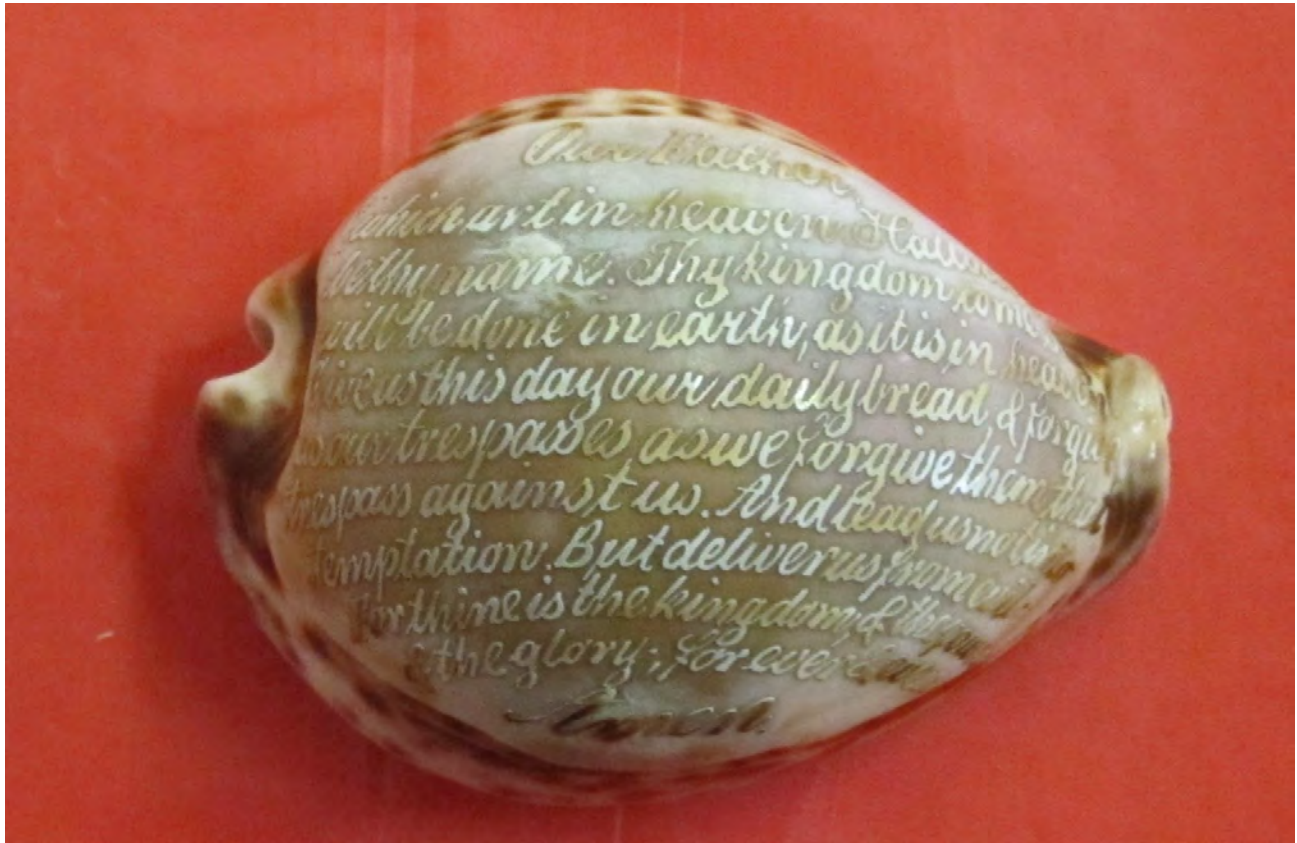 Our Father,
which art in heaven Hallow
be thy name. Thy kingdom come
will be done in earth, as it is in heaven
Give us this day our daily bread & forgive
us our trespasses as we forgive them that
trespass against us. And lead us not in
temptation. But deliver us from evil
For thine is the kingdom, & the
& the glory; for ever &
Amen.